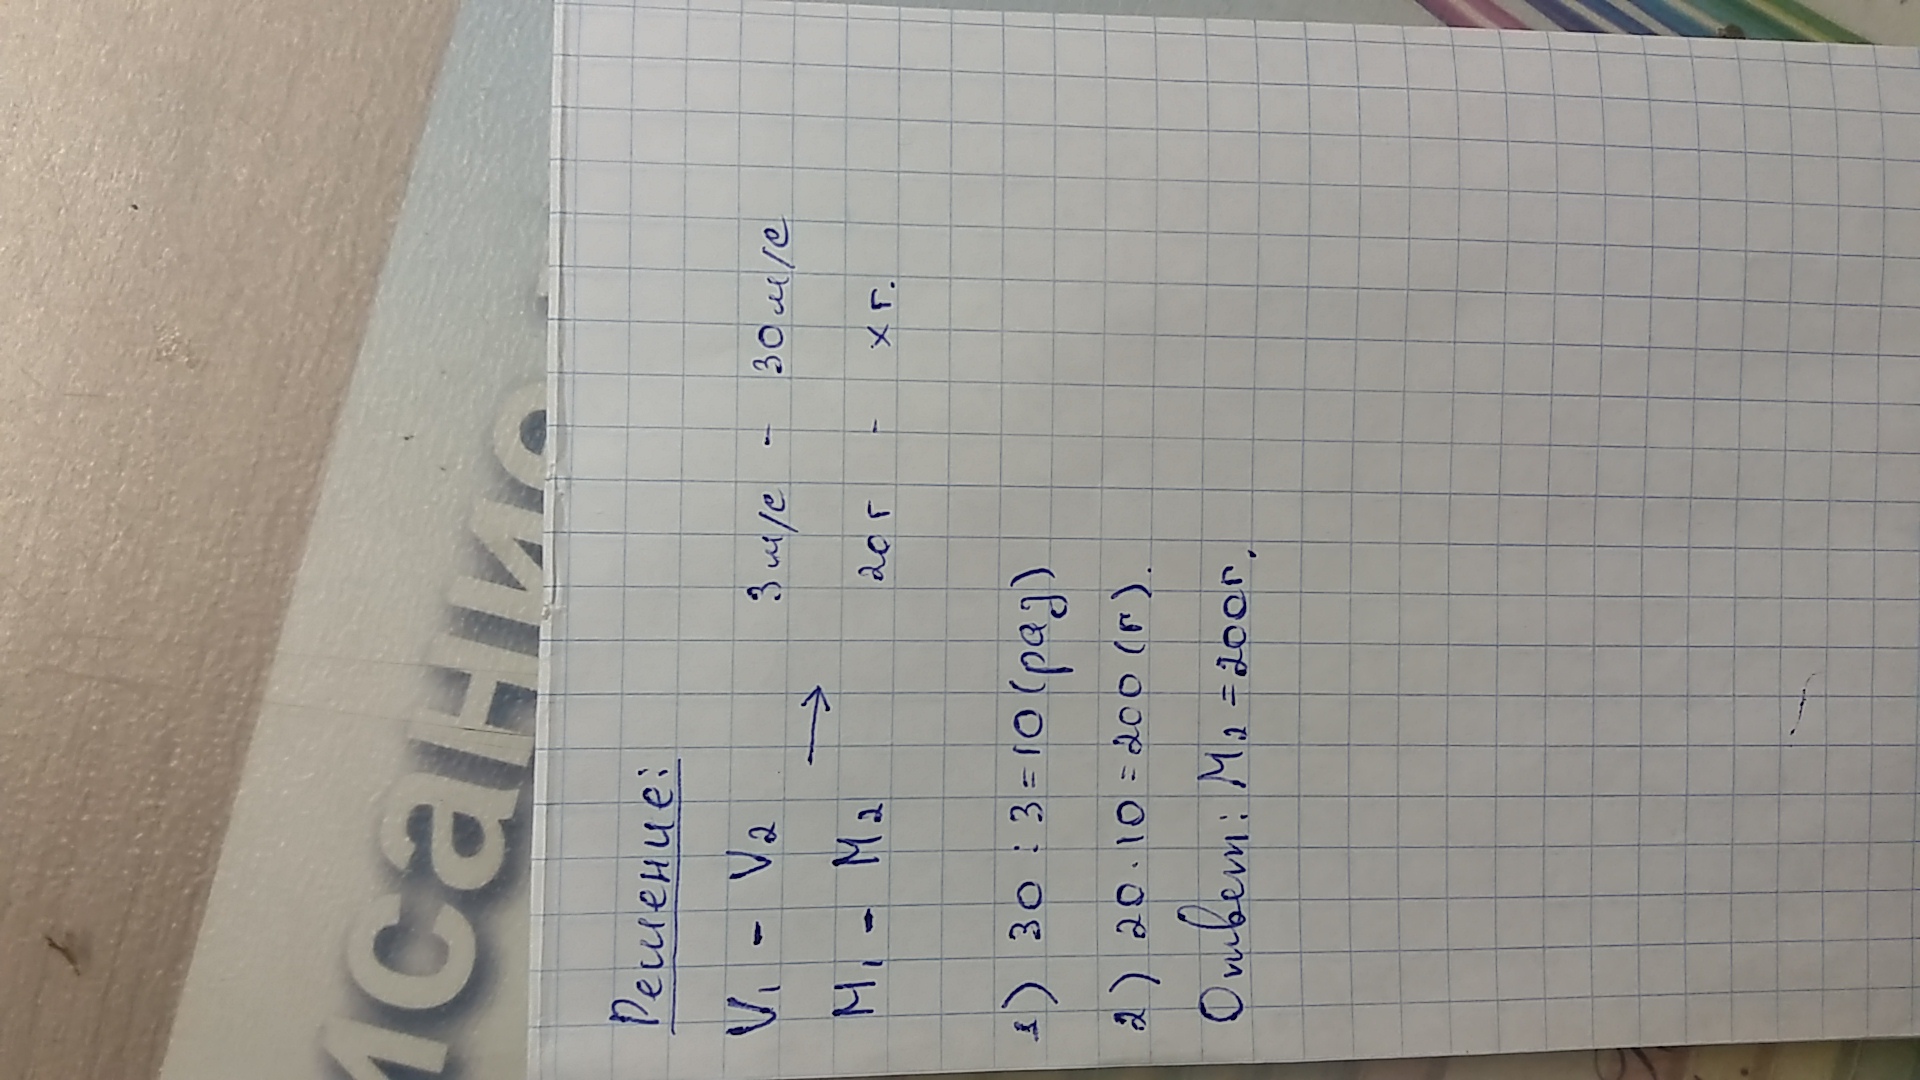 Решение:
V₁ - V₂ → 3 м/с - 30 м/с
М₁ - М₂ 20 г - х г.
1) 30 : 3 = 10 (раз)
2) 20 · 10 = 200 (г).
Ответ: М₂ = 200 г.
исание